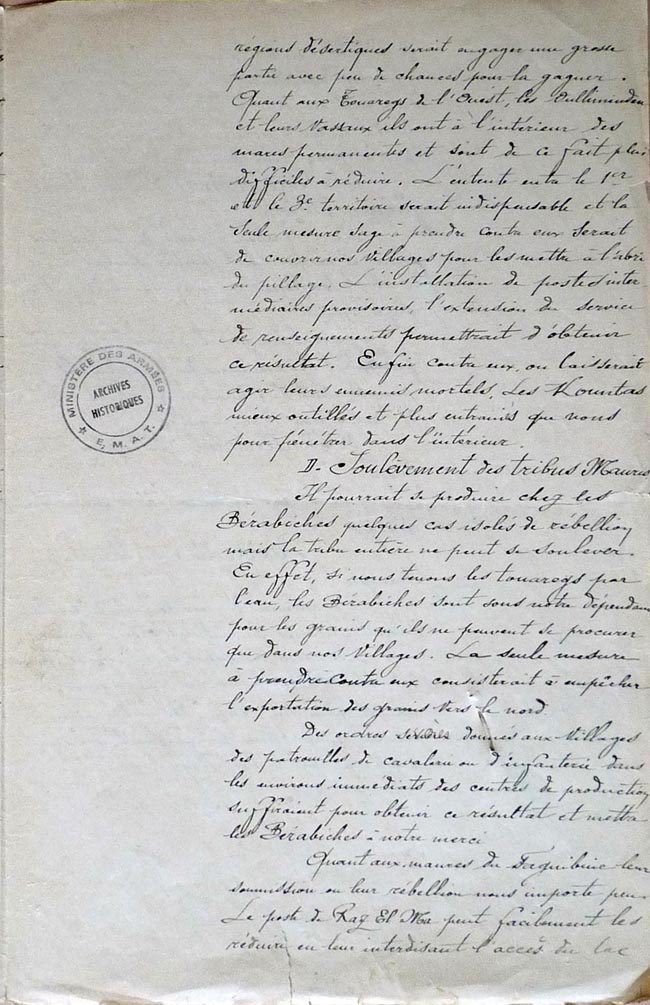 régions désertiques serait engager une grosse
partie avec peu de chances pour la gagner.
Quant aux Touaregs de l'Ouest, les Oulliminden
et leurs vassaux ils ont à l'intérieur des
mares permanentes et sont de ce fait plus
difficiles à réduire. L'entente entre le 1er
et le 3e territoire serait indispensable et la
seule mesure sage à prendre contre eux serait
de couvrir nos villages pour les mettre à l'abri
du pillage. L'installation de postes inter-
médiaires provisoires, l'extension du service
de renseignements permettrait d'obtenir
ce résultat. Enfin contre eux, on laisserait
agir leurs ennemis mortels, Les Kountas
mieux outillés et plus entrainés que nous
pour pénétrer dans l'intérieur.
D- Soulèvement des tribus Maures
Il pourrait se produire chez les
Bérabiches quelques cas isolés de rébellion
mais la tribu entière ne peut se soulever.
En effet, si nous tenons les touaregs par
l'eau, les Bérabiches sont sous notre dépendan
pour les grains qu'ils ne peuvent se procurer
que dans nos villages. La seule mesure
à prendre contre eux consisterait à empêcher
l'exportation des grains vers le nord
Des ordres sévères donnés aux villages
des patrouilles de cavalerie ou d'infanterie dans
les environs immédiats des centres de production
suffiraient pour obtenir ce résultat et mettre
les Bérabiches à notre merci
Quant aux maures du Faguibine leur
soumission ou leur rébellion nous importe peu.
Le poste de Raz El Ma peut facilement les
réduire en leur interdisant l'accès du lac
MINISTÈRE DES ARMÉES
ARCHIVES
HISTORIQUES
E. M. A. T.